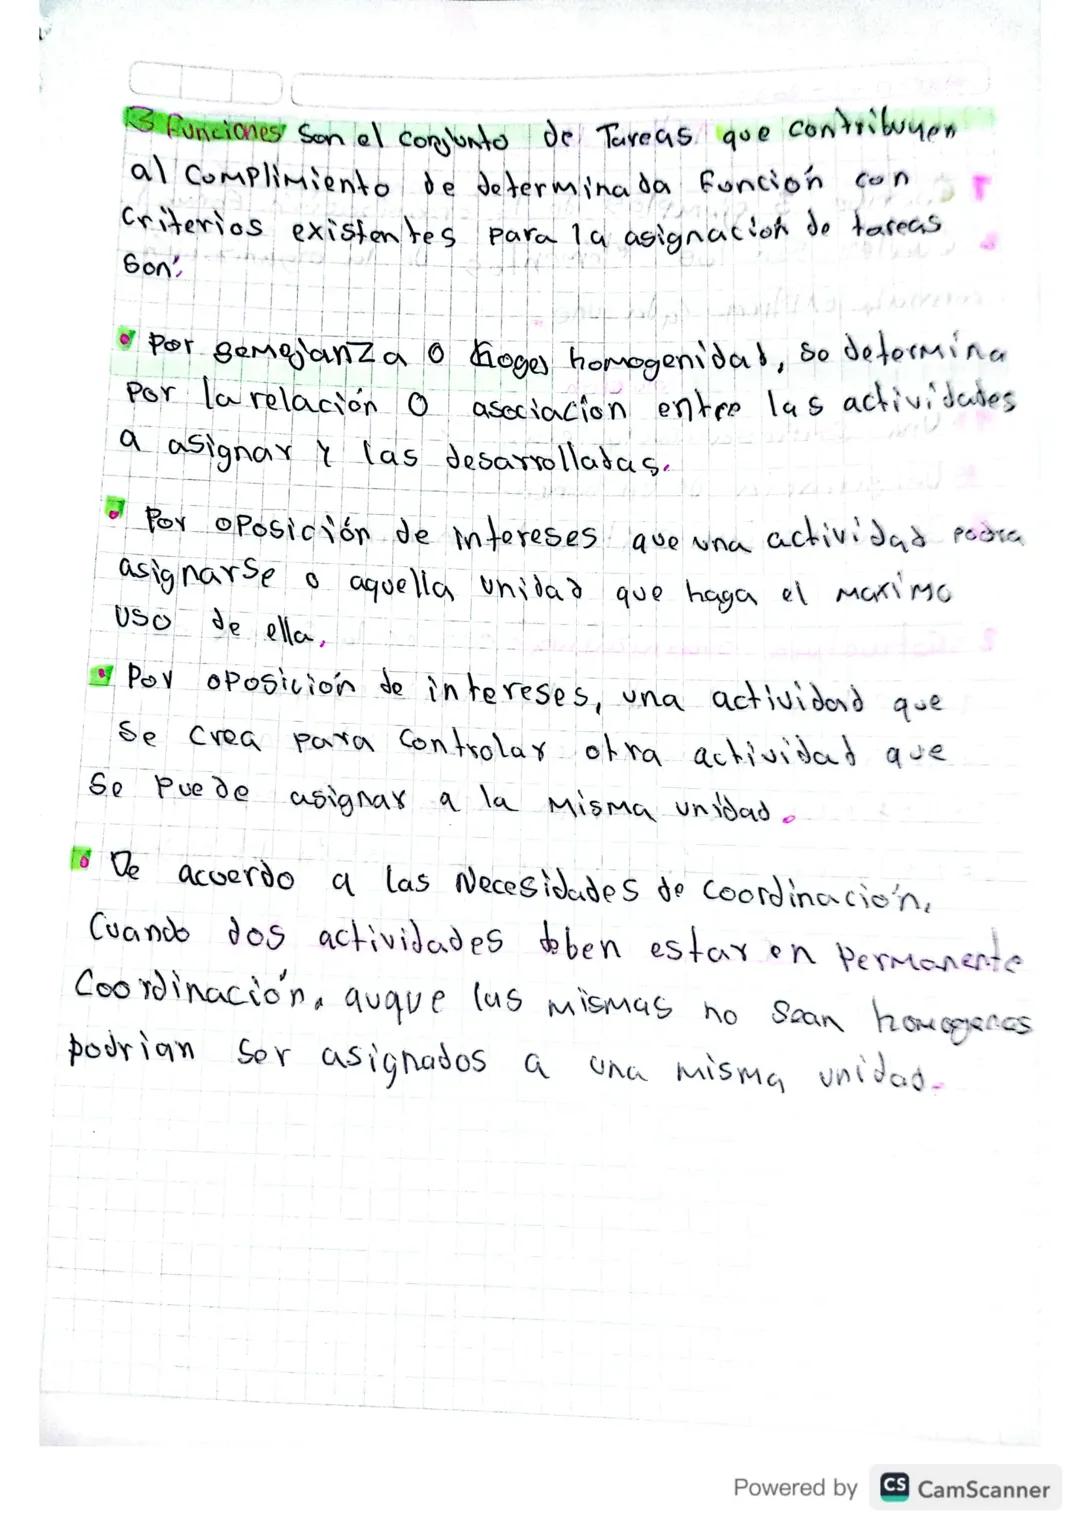 3 Funciones Son el conjunto de Tareas que contribuyen
al complimiento de determinada función con
criterios existentes para la asignación de tareas
Son:
Por semejanza o hoges homogenidad, se determina
por la relación o asociacion entre las actividades
a asignar y las desarrolladas.
Por oposición de intereses que una actividad podra
asignarse o aquella unidad que haga el maximo
uso de ella.
Por oposición de intereses, una actividad que
se crea para controlar otra actividad que
se puede asignar a la misma unidad.
De acuerdo a las Necesidades de coordinación.
Cuando dos actividades deben estar en permanente
Coordinación, auque las mismas no sean homogeneas
podrian ser asignados a una misma unidad.
Powered by CS CamScanner